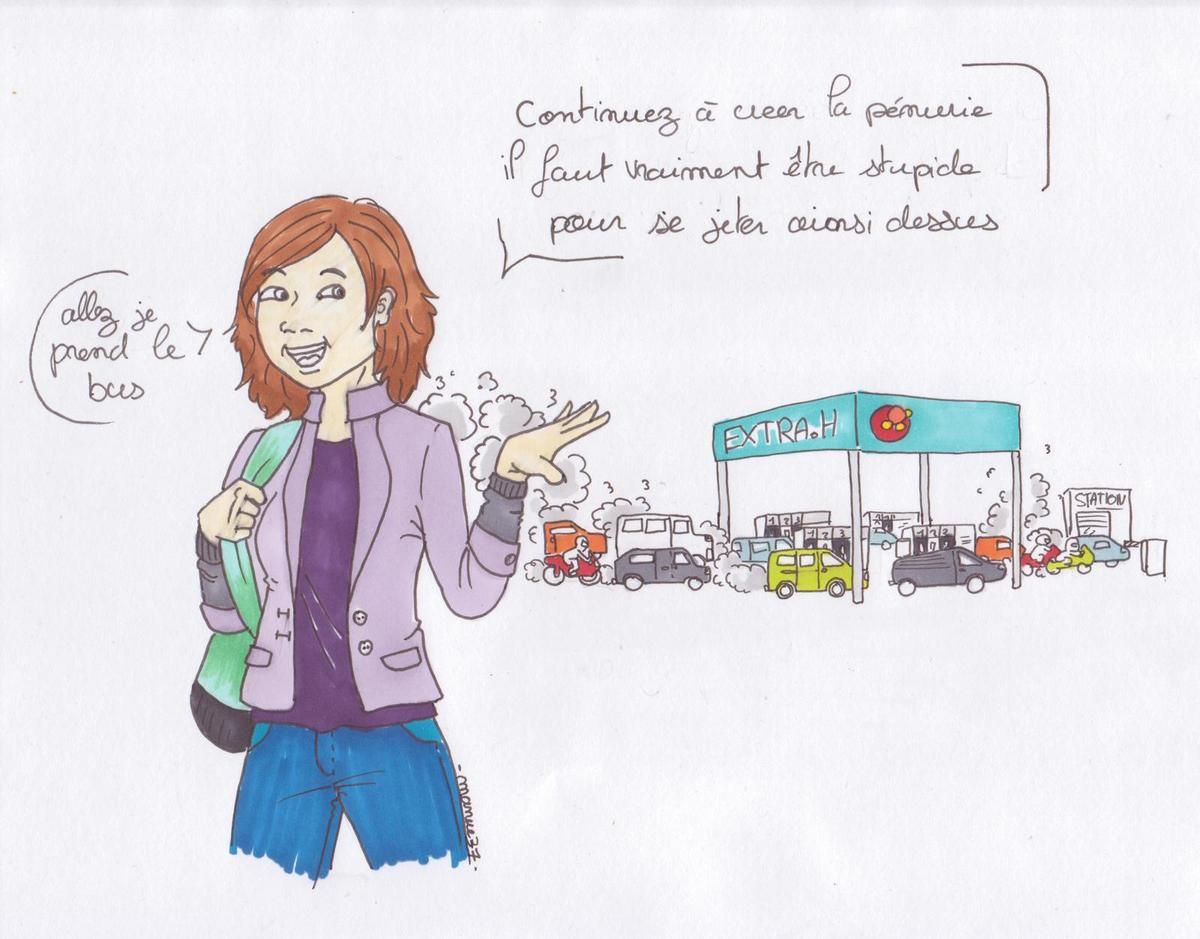 Continuez à creer la pénurie
il faut vraiment être stupide
pour se jeter ainsi dessus
allez je
prend le
bus
EXTRA.H
STATION